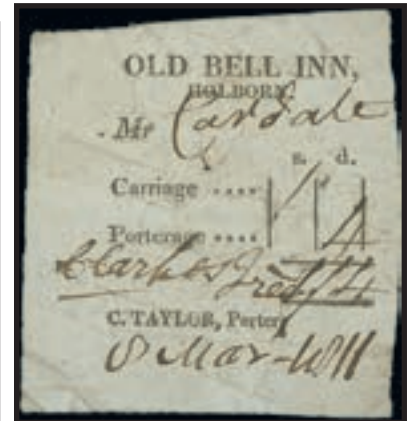 OLD BELL INN,
HOLBORN.
Mr Cardale
s. d.
Carriage .... 1
Porterage .... 4
1/4
C. TAYLOR, Porter
8 Mar 1811